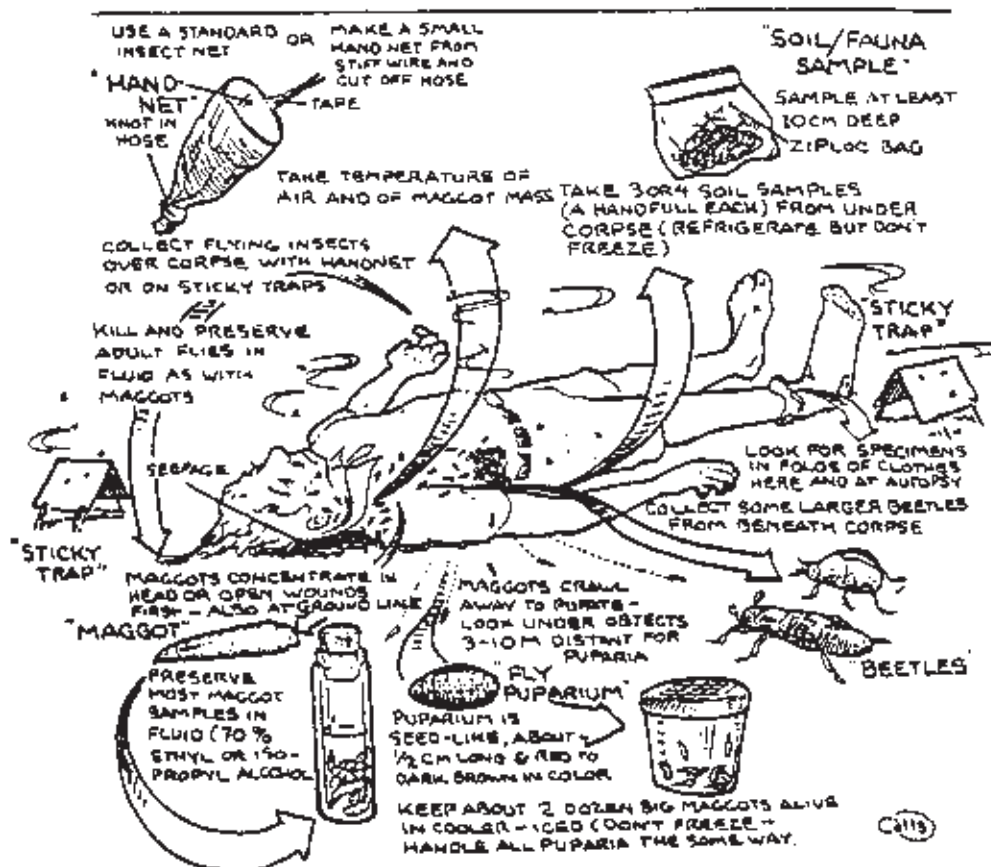 USE A STANDARD
INSECT NET
OR
MAKE A SMALL
HAND NET FROM
STIFF WIRE AND
CUT OFF HOSE
"HAND-
NET"
TAPE
KNOT IN
HOSE
"SOIL/FAUNA
SAMPLE"
SAMPLE AT LEAST
10CM DEEP
ZIPLOC BAG
TAKE TEMPERATURE OF
AIR AND OF MAGGOT MASS
TAKE 3 OR 4 SOIL SAMPLES
(A HANDFULL EACH) FROM UNDER
CORPSE (REFRIGERATE BUT DON'T
FREEZE)
COLLECT FLYING INSECTS
OVER CORPSE WITH HANDNET
OR ON STICKY TRAPS
KILL AND PRESERVE
ADULT FLIES IN
FLUID AS WITH
MAGGOTS
"STICKY
TRAP"
SEEPAGE
LOOK FOR SPECIMENS
IN FOLDS OF CLOTHES
HERE AND AT AUTOPSY
COLLECT SOME LARGER BEETLES
FROM BENEATH CORPSE
"STICKY
TRAP"
MAGGOTS CONCENTRATE IN
HEAD OR OPEN WOUNDS
FIRST - ALSO AT GROUND LINE
MAGGOTS CRAWL
AWAY TO PUPATE -
LOOK UNDER OBJECTS
3-10M DISTANT FOR
PUPARIA
"BEETLES"
"MAGGOT"
PRESERVE
MOST MAGGOT
SAMPLES IN
FLUID (70%
ETHYL OR ISO-
PROPYL ALCOHOL
"FLY
PUPARIUM"
PUPARIUM IS
SEED-LIKE, ABOUT
1/2 CM LONG & RED TO
DARK BROWN IN COLOR
KEEP ABOUT 2 DOZEN BIG MAGGOTS ALIVE
IN COOLER - ICED (DON'T FREEZE -
HANDLE ALL PUPARIA THE SAME WAY.